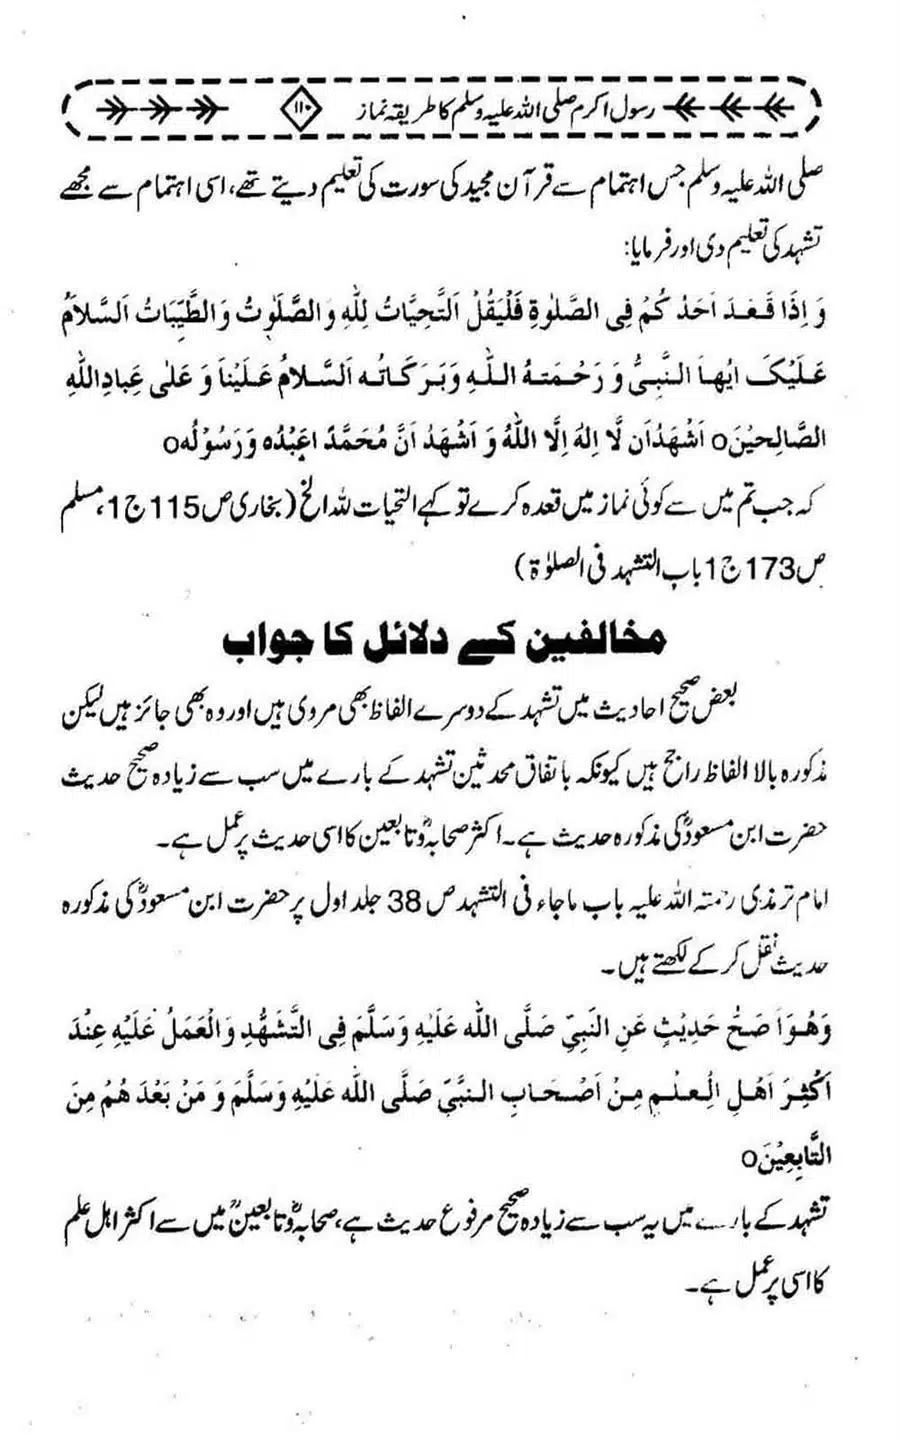 رسول اکرم صلی اللہ علیہ وسلم کا طریقہ نماز ۱۱۰
صلی اللہ علیہ وسلم جس اہتمام سے قرآن مجید کی سورت کی تعلیم دیتے تھے، اسی اہتمام سے مجھے
تشہد کی تعلیم دی اور فرمایا:
وَ اِذَا قَعَدَ اَحَدُ کُمْ فِی الصَّلٰوةِ فَلْیَقُلْ اَلتَّحِیَّاتُ لِلّٰهِ وَالصَّلَوٰتُ وَالطَّیِّبَاتُ اَلسَّلَامُ
عَلَیْکَ ایُّهاَ النَّبِیُّ وَ رَحْمَتهُ اللّٰهِ وَبَرَکَاتُه اَلسَّلامُ عَلَیْنَا وَ عَلٰی عِبادِاللّٰهِ
الصَّالِحیْنَo اَشْهَدُاَن لَّا اِلهَ اِلَّا اللّٰهُ وَ اَشْهَدُ اَنَّ مُحَمَّدً اعَبْدُه وَرَسُوْلُهo
کہ جب تم میں سے کوئی نماز میں قعدہ کرے تو کہے التحیات للہ الخ (بخاری ص115 ج1، مسلم
ص173 ج1 باب التشہد فی الصلوٰة)
مخالفین کے دلائل کا جواب
بعض صحیح احادیث میں تشہد کے دوسرے الفاظ بھی مروی ہیں اور وہ بھی جائز ہیں لیکن
مذکورہ بالا الفاظ راجح ہیں کیونکہ باتفاق محدثین تشہد کے بارے میں سب سے زیادہ صحیح حدیث
حضرت ابن مسعودؓ کی مذکورہ حدیث ہے۔ اکثر صحابہؓ وتابعین کا اسی حدیث پر عمل ہے۔
امام ترمذی رحمتہ اللہ علیہ باب ماجاء فی التشہد ص 38 جلد اول پر حضرت ابن مسعودؓ کی مذکورہ
حدیث نقل کر کے لکھتے ہیں۔
وَهُوَاَ صَحُّ حَدِیْثٍ عَنِ النَبِیِّ صَلَّی الله عَلَیْهِ وَسَلَّمَ فِی التَّشَهُّدِ وَالْعَمَلُ عَلَیْهِ عِنْدَ
اَکْثَرِ اَهْلِ الْعِلْمِ مِنْ اَصْحَابِ النَّبِّیِ صَلَّی الله عَلَیْهِ وَسَلَّمَ وَ مَنْ بَعْدَ هُمْ مِنَ
التَّابِعِیْنَo
تشہد کے بارے میں یہ سب سے زیادہ صحیح مرفوع حدیث ہے، صحابہؓ وتابعینؒ میں سے اکثر اہل علم
کا اسی پر عمل ہے۔